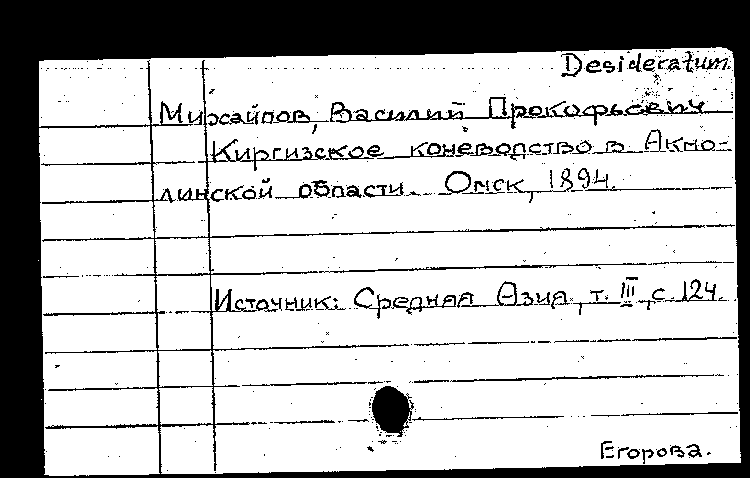 Desideratum
Михайлов, Василий Прокофьевич
Киргизское коневодство в Акмо-
линской области. Омск, 1894.
Источник: Средняя Азия, т. III, с. 124.
Егорова.